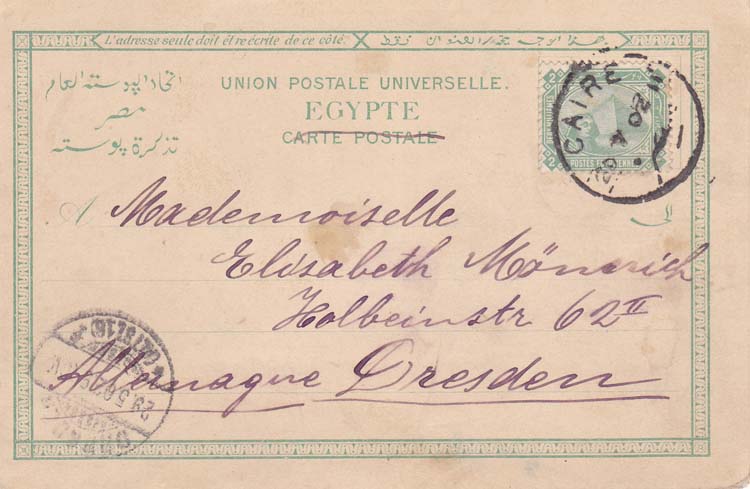 L'adresse seule doit être écrite de ce côté.
UNION POSTALE UNIVERSELLE.
EGYPTE
CARTE POSTALE
اتحاد البوسته العام
مصر
تذكرة بوسته
CAIRE
02
POSTES EGYPTIENNES
A
الى
Mademoiselle
Elisabeth
Holbeinstr 62 II
Allemagne Dresden